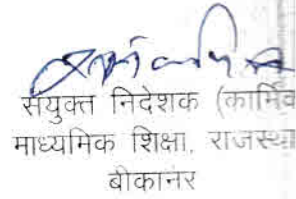 संयुक्त निदेशक (कार्मिक
माध्यमिक शिक्षा, राजस्था
बीकानेर